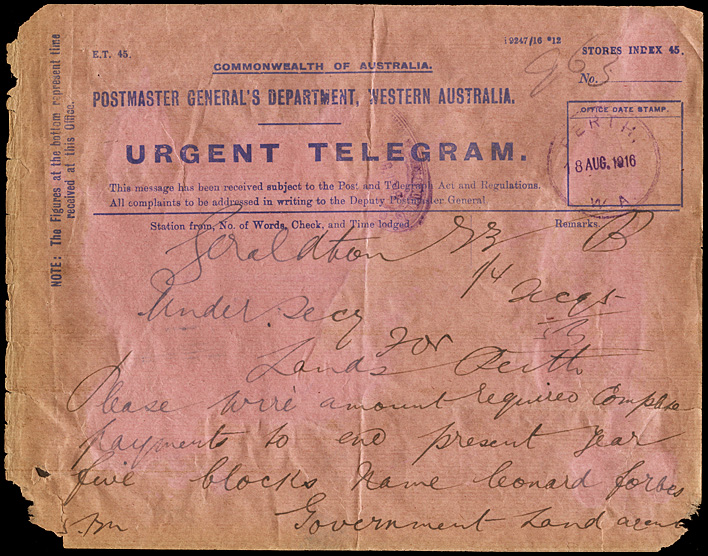 E.T. 45.
9247/16 *12
STORES INDEX 45.
COMMONWEALTH OF AUSTRALIA.
No. 963
POSTMASTER GENERAL'S DEPARTMENT, WESTERN AUSTRALIA.
URGENT TELEGRAM.
OFFICE DATE STAMP.
PERTH
18 AUG. 1916
W.A
This message has been received subject to the Post and Telegraph Act and Regulations.
All complaints to be addressed in writing to the Deputy Postmaster General
Station from, No. of Words, Check, and Time lodged.
Remarks.
NOTE: The Figures at the bottom represent time
received at this Office.
Geraldton
Under Secy for
Lands Perth
Please wire amount required complete
payments to end present year
five blocks name leonard forbes
Government Land agent